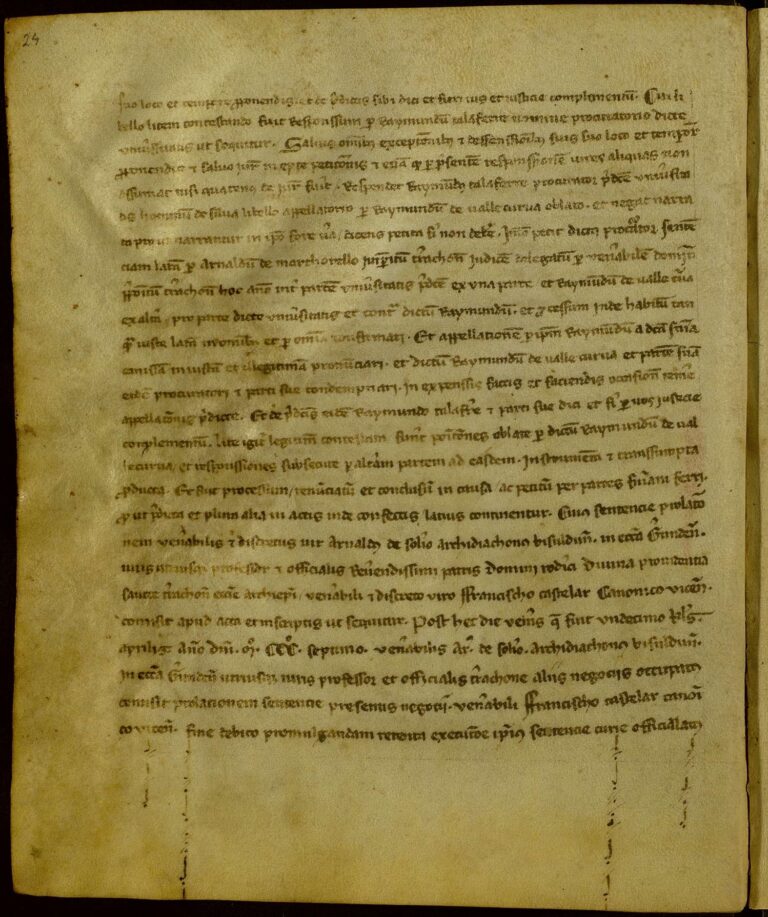 24
suo loco et tempore proponendis et de predictis sibi dici et fieri ius et iusticie complementum. Cui li
bello litem contestando fuit responssum per Raymundum talaferre nomine procuratorio dicte
universitatis ut sequitur. Salvis omnibus exceptionibus et deffenssionibus suis suo loco et tempore
proponendis et salvo iure petitionis et per presentem responssionem vires aliquas non
assumat nisi quatenus de iure fuerit. Respondet Raymundus talaferre procurator predicte universita
tis hominum de silva libello appellatorio per Raymundum de valle curva oblato. et negat narra
ta prout narrantur in ipso fore vera, dicens petita fieri non debere. Imo petit dictus procurator senten
ciam latam per Arnaldum de iurisperitum Terrachone Iudicem delegatum per venerabilem dominum
prepositum Terrachone hoc anno inter partem universitatis predicte ex una parte et Raymundum de valle curva
ex altera, pro parte dicte universitatis et contra dictum Raymundum. et processum inde habitum tan
quam iuste latam et per omnia confirmari. Et appellationem per ipsum Raymundum a dicta sententia
emissam iniustam et illegitimam pronunciari. et dictum Raymundum de valle curva et partem suam
eidem procuratori et parti sue condempnari. in expenssis factis et faciendis occasione
appellationis predicte. Et de predictis eidem Raymundo talaferre et parti sue dici et fieri per vos iusticie
complementum. Lite igitur legitime contestata fuerunt positiones oblate per dictum Raymundum de val
lecurva, et responssiones subsecute per alteram partem ad easdem. Instrumenta et transsumpta
producta. Et fuit processum, renunciatum et conclusum in causa, ac petitum per partes sententiam ferri.
prout predicta et plura alia in actis inde confectis lacius continentur. Cuius sentencie prolatio
nem venerabilis et discretus vir Arnaldus de solerio archidiachonus bisuldunensis. in ecclesia Gerundensi.
iuris utriusque professor et officialis Reverendissimi patris domini rodici divina providencia
sancte Terrachone ecclesie archiepiscopi, venerabili et discreto viro ffrancischo castelar Canonico vicensi.
comisit apud acta et in scriptis ut sequitur. Post hec die veneris que fuit undecimo kalendas
aprilis. anno domini .Mo. CCCo. septimo. venerabilis Ar. de solerio. archidiachonus bisuldunensis.
in ecclesia Gerundensi utriusque iuris professor et officialis Terrachone aliis negociis occupatus
comisit prolacionem sentencie presentis negocii. venerabili ffrancischo castelar canoni
co vicensi. fine debito promulgandam retenta executione ipsius sentencie curie officialatus